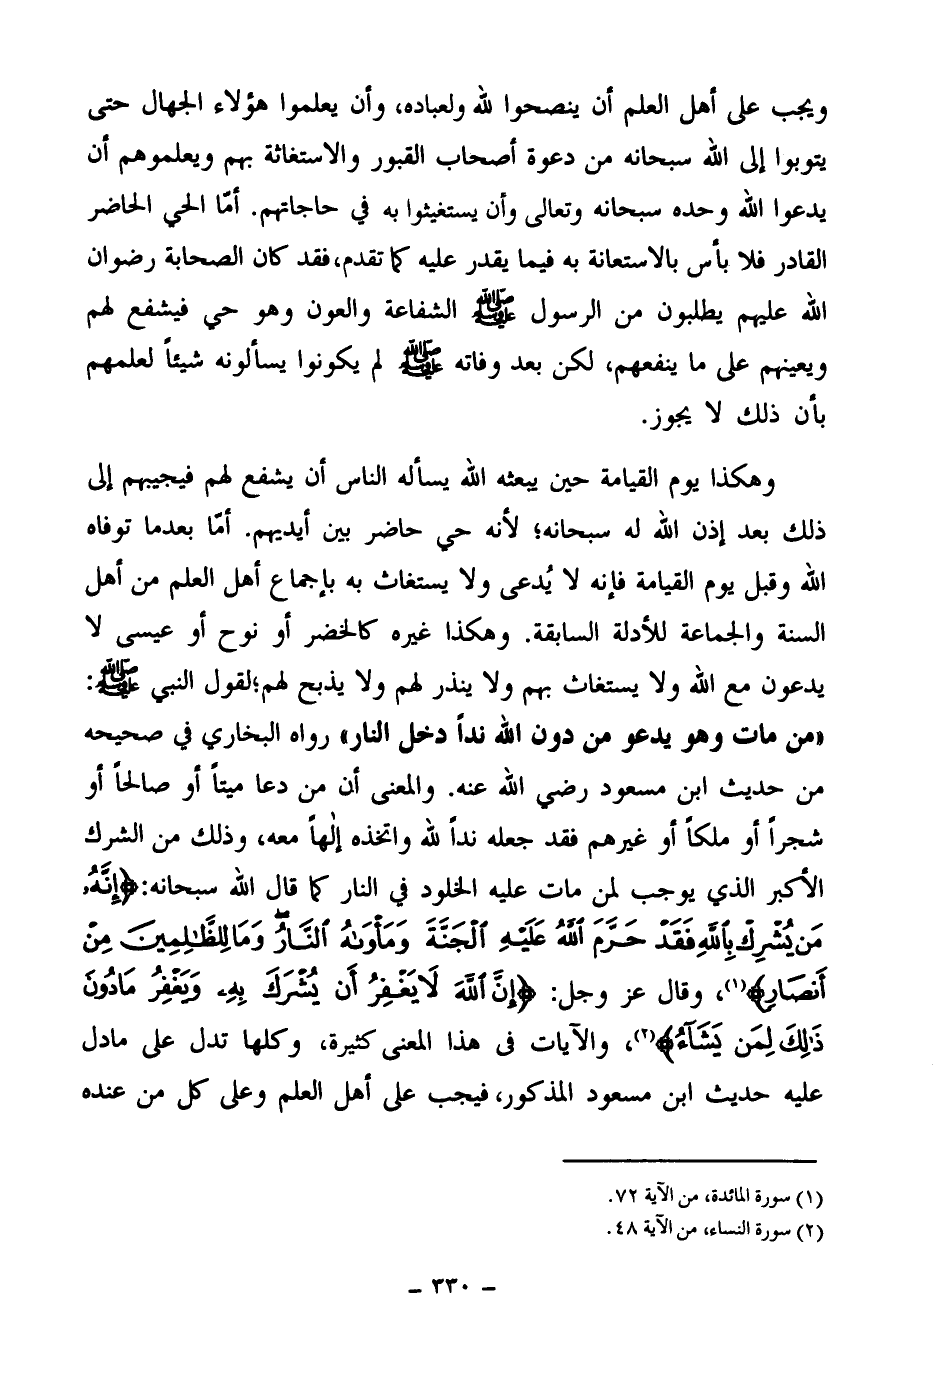 ويجب على أهل العلم أن ينصحوا لله ولعباده، وأن يعلموا هؤلاء الجهال حتى
يتوبوا إلى الله سبحانه من دعوة أصحاب القبور والاستغاثة بهم ويعلموهم أن
يدعوا الله وحده سبحانه وتعالى وأن يستغيثوا به في حاجاتهم. أمّا الحي الحاضر
القادر فلا بأس بالاستعانة به فيما يقدر عليه كما تقدم، فقد كان الصحابة رضوان
الله عليهم يطلبون من الرسول ﷺ الشفاعة والعون وهو حي فيشفع لهم
ويعينهم على ما ينفعهم، لكن بعد وفاته ﷺ لم يكونوا يسألونه شيئاً لعلمهم
بأن ذلك لا يجوز.
وهكذا يوم القيامة حين يبعثه الله يسأله الناس أن يشفع لهم فيجيبهم إلى
ذلك بعد إذن الله له سبحانه؛ لأنه حي حاضر بين أيديهم. أمّا بعدما توفاه
الله وقبل يوم القيامة فإنه لا يُدعى ولا يستغاث به بإجماع أهل العلم من أهل
السنة والجماعة للأدلة السابقة. وهكذا غيره كالخضر أو نوح أو عيسى لا
يدعون مع الله ولا يستغاث بهم ولا ينذر لهم ولا يذبح لهم؛ لقول النبي ﷺ:
«من مات وهو يدعو من دون الله نداً دخل النار» رواه البخاري في صحيحه
من حديث ابن مسعود رضي الله عنه. والمعنى أن من دعا ميتاً أو صالحاً أو
شجراً أو ملكاً أو غيرهم فقد جعله نداً لله واتخذه إلٰهاً معه، وذلك من الشرك
الأكبر الذي يوجب لمن مات عليه الخلود في النار كما قال الله سبحانه: ﴿إِنَّهُۥ
مَن يُشْرِكْ بِٱللَّهِ فَقَدْ حَرَّمَ ٱللَّهُ عَلَيْهِ ٱلْجَنَّةَ وَمَأْوَىٰهُ ٱلنَّارُ ۖ وَمَا لِلظَّٰلِمِينَ مِنْ
أَنصَارٍ﴾(١)، وقال عز وجل: ﴿إِنَّ ٱللَّهَ لَا يَغْفِرُ أَن يُشْرَكَ بِهِۦ وَيَغْفِرُ مَا دُونَ
ذَٰلِكَ لِمَن يَشَآءُ﴾(٢)، والآيات فى هذا المعنى كثيرة، وكلها تدل على مادل
عليه حديث ابن مسعود المذكور، فيجب على أهل العلم وعلى كل من عنده
(١) سورة المائدة، من الآية ٧٢.
(٢) سورة النساء، من الآية ٤٨.
- ٣٣٠ -